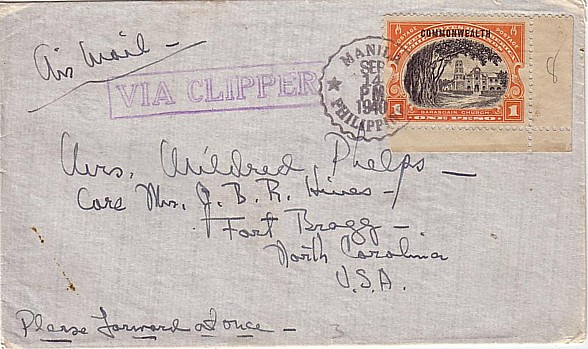 Air Mail —
VIA CLIPPER
MANILA
SEP
14
PM
1940
PHILIPPINES
COMMONWEALTH
BARASOAIN CHURCH
1 ONE PESO 1
8
Mrs. Mildred Phelps —
Care Mrs. J. B. R. Hines —
Fort Bragg —
North Carolina
U.S.A.
Please forward at once —
3